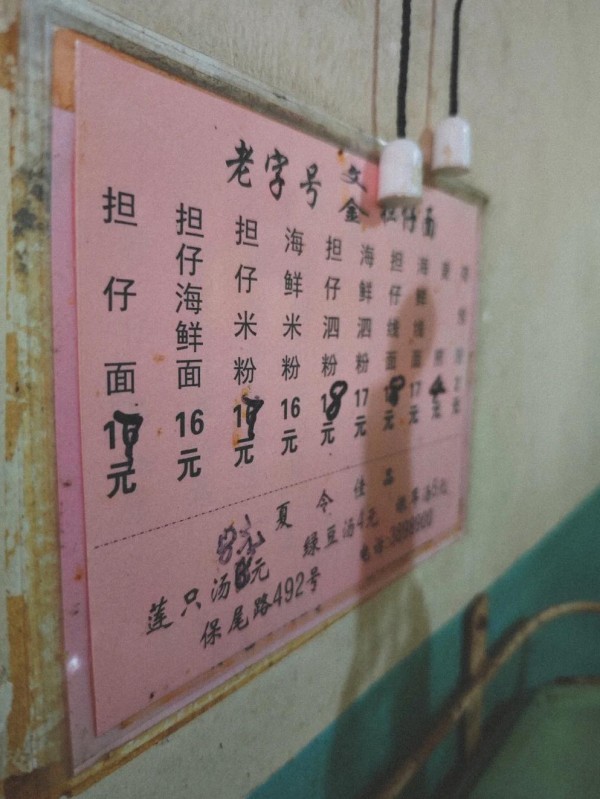 老字号 文金担仔面
担仔面 17元
担仔海鲜面 16元
担仔米粉 17元
海鲜米粉 16元
担仔泗粉 18元
海鲜泗粉 17元
担仔线面 18元
海鲜线面 17元
4元
2元
夏令佳品
莲只汤 8元 绿豆汤4元
保尾路492号 电话